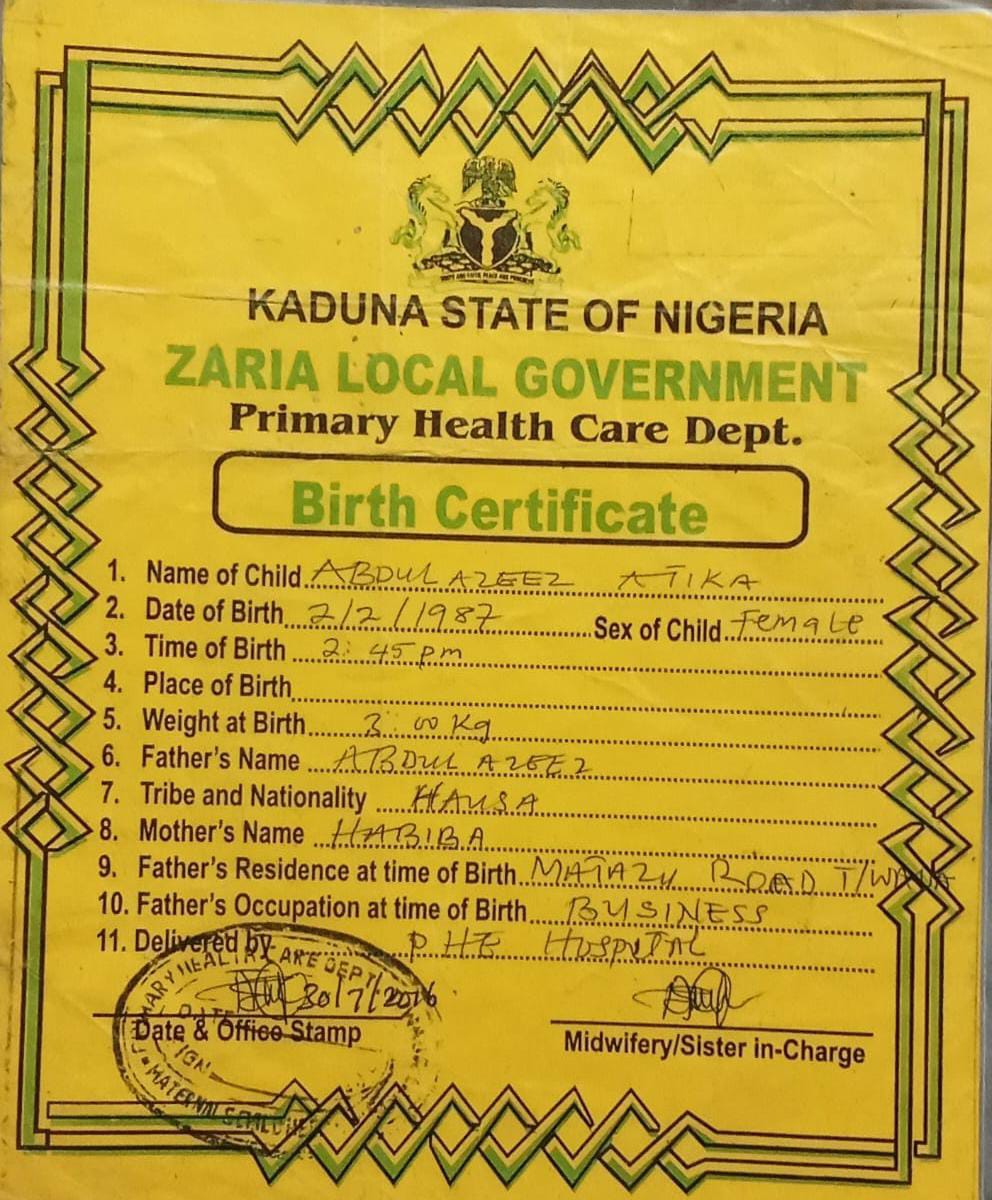 UNITY AND FAITH, PEACE AND PROGRESS
KADUNA STATE OF NIGERIA
ZARIA LOCAL GOVERNMENT
Primary Health Care Dept.
Birth Certificate
1. Name of Child ABDUL AZEEZ ATIKA
2. Date of Birth 2/2/1987 Sex of Child Female
3. Time of Birth 2:45pm
4. Place of Birth
5. Weight at Birth 3.00kg
6. Father's Name ABDUL AZEEZ
7. Tribe and Nationality HAUSA
8. Mother's Name HABIBA
9. Father's Residence at time of Birth MATAZU ROAD T/WADA
10. Father's Occupation at time of Birth BUSINESS
11. Delivered by PHE HOSPITAL
PRIMARY HEALTH CARE DEPT
30/7/2016
DATE
Date & Office Stamp
IGN
Midwifery/Sister in-Charge
MATERNAL &